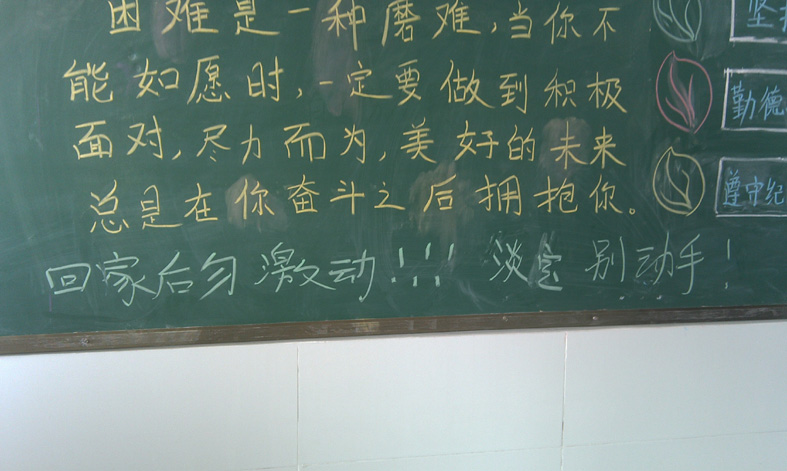 困难是一种磨难，当你不
能如愿时，一定要做到积极
面对，尽力而为，美好的未来
总是在你奋斗之后拥抱你。
回家后勿激动！！！ 淡定 别动手！
坚
勤德
遵守纪